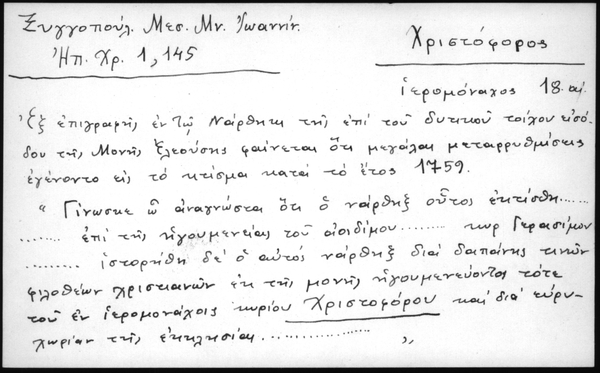 Ξυγγοπούλ. Μεσ. Μν. Ἰωαννίν.
Ἠπ. Χρ. 1, 145
Χριστόφορος
ἱερομόναχος 18. αἰ.
Ἐξ ἐπιγραφῆς ἐν τῷ Νάρθηκι τῆς ἐπί τοῦ δυτικοῦ τοίχου εἰσό-
δου τῆς Μονῆς Ἐλεούσης φαίνεται ὅτι μεγάλαι μεταρρυθμίσεις
ἐγένοντο εἰς τό κτίσμα κατά τό ἔτος 1759.
"Γίνωσκε ὦ ἀναγνῶστα ὅτι ὁ νάρθηξ οὗτος ἐκτίσθη......
........ ἐπί τῆς ἡγουμενείας τοῦ ἀοιδίμου ........ κυρ Γερασίμου
........ ἱστορήθη δέ ὁ αὐτός νάρθηξ διά δαπάνης τινῶν
φιλοθέων χριστιανῶν ἐκ τῆς μονῆς ἡγουμενεύοντος τότε
τοῦ ἐν ἱερομονάχοις κυρίου Χριστοφόρου καί διά εὐρυ-
χωρίαν τῆς ἐκκλησίας ................ "